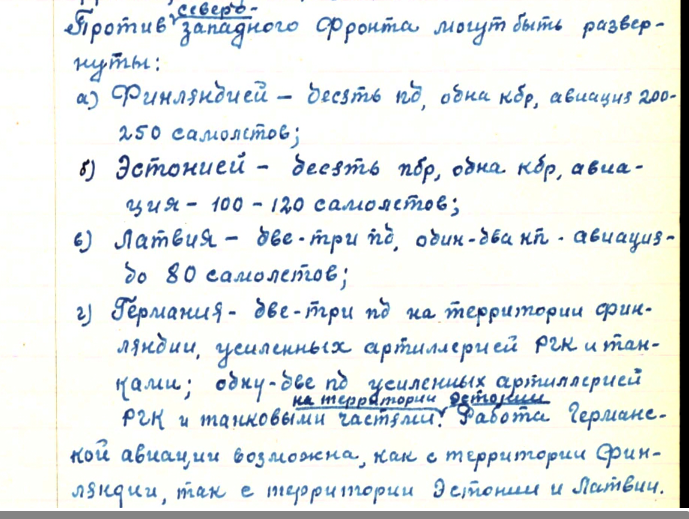 северо-
Против западного фронта могут быть развер-
нуты:
а) Финляндией – десять пд, одна кбр, авиация 200-
250 самолетов;
б) Эстонией – десять пбр, одна кбр, авиа-
ция – 100 – 120 самолетов;
в) Латвия – две-три пд, один-два кп - авиация -
до 80 самолетов;
г) Германия - две-три пд на территории Фин-
ляндии, усиленных артиллерией РГК и тан-
ками; одну-две пд усиленных артиллерией
на территории Эстонии
РГК и танковыми частями. Работа Германс-
кой авиации возможна, как с территории Фин-
ляндии, так с территории Эстонии и Латвии.